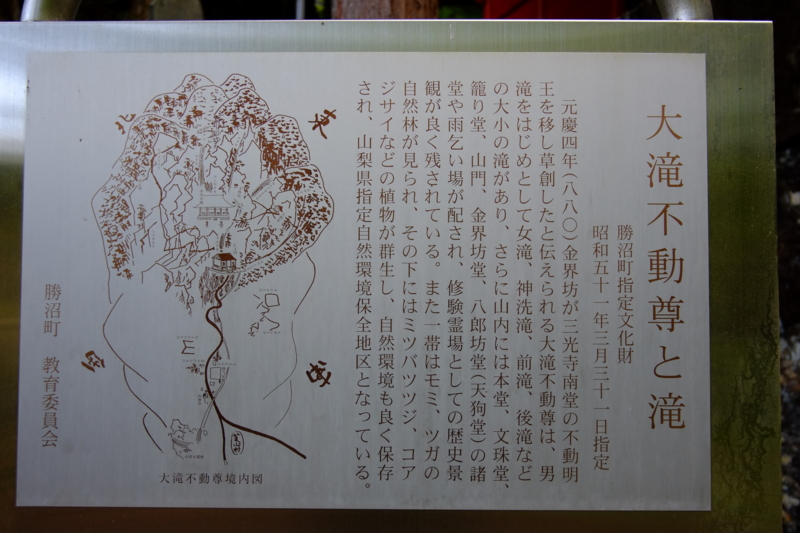 大滝不動尊と滝
勝沼町指定文化財
昭和五十一年三月三十一日指定
元慶四年(八八〇)金界坊が三光寺南堂の不動明
王を移し草創したと伝えられる大滝不動尊は、男
滝をはじめとして女滝、神洗滝、前滝、後滝など
の大小の滝があり、さらに山内には本堂、文珠堂、
籠り堂、山門、金界坊堂、八郎坊堂(天狗堂)の諸
堂や雨乞い場が配され、修験霊場としての歴史景
観が良く残されている。また一帯はモミ、ツガの
自然林が見られ、その下にはミツバツツジ、コア
ジサイなどの植物が群生し、自然環境も良く保存
され、山梨県指定自然環境保全地区となっている。
北
東
大滝不動尊境内図
勝沼町 教育委員会